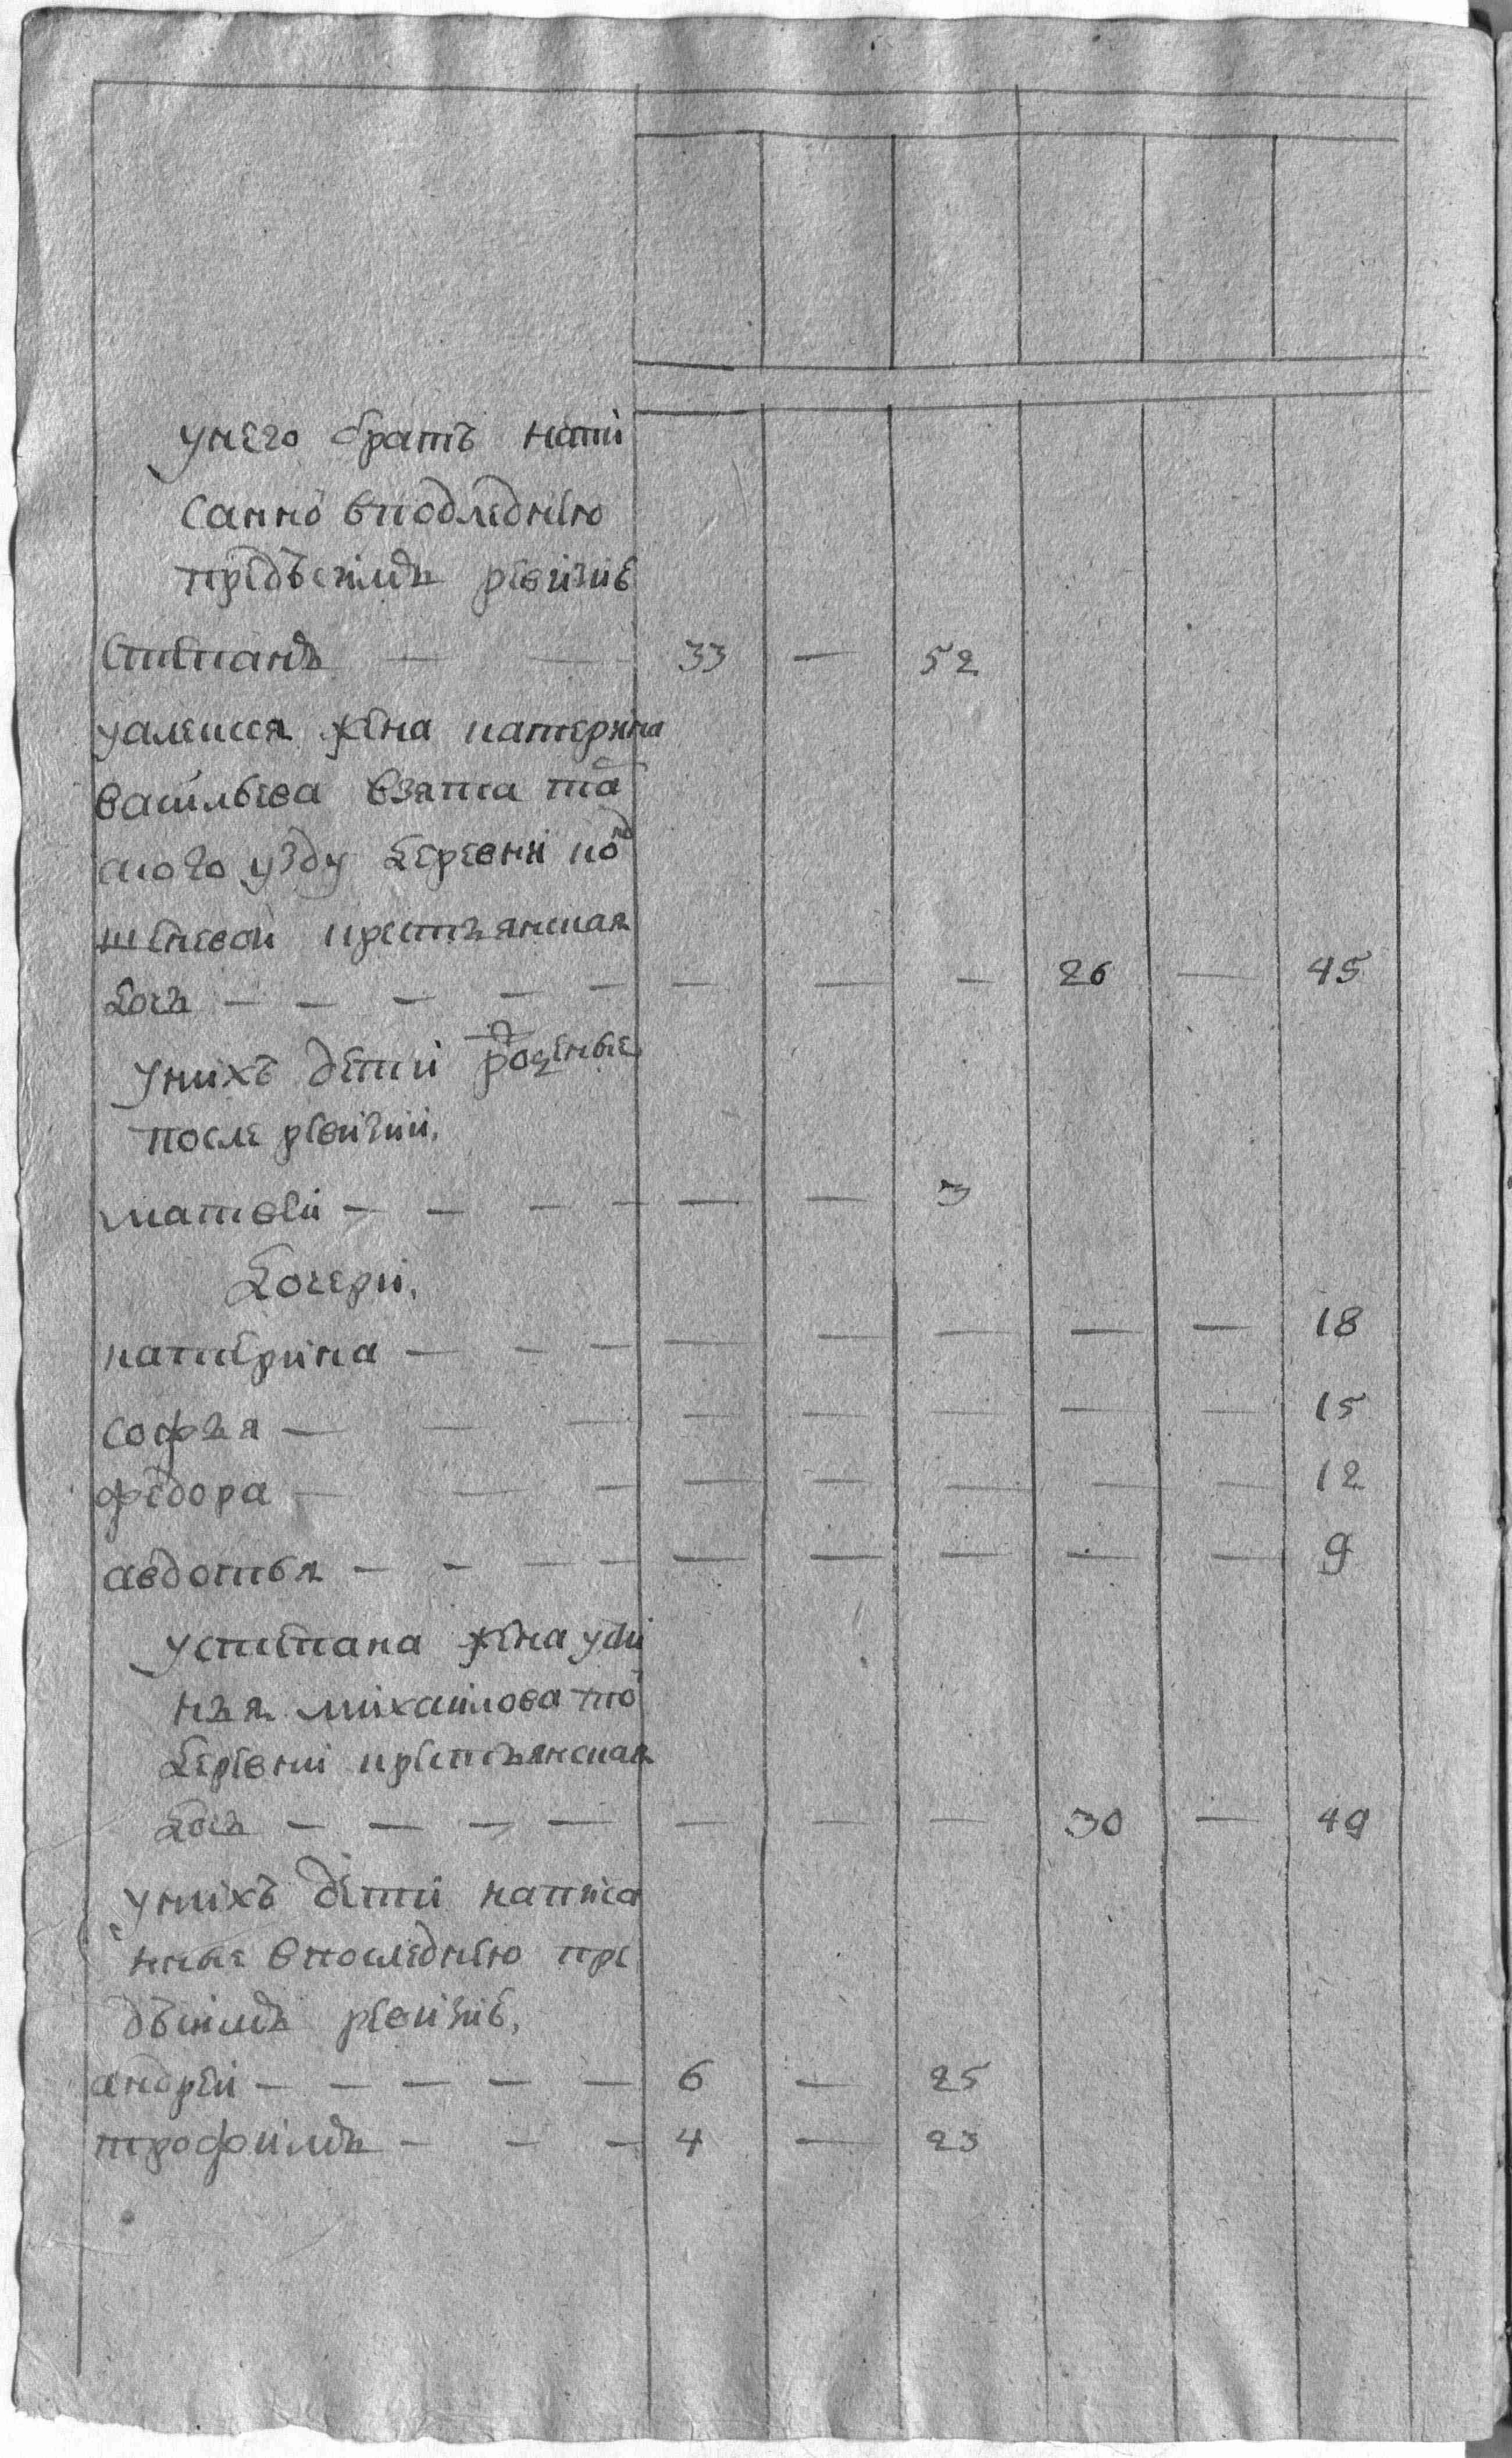 унего братъ напи
санно вподледнѣю
предъсимъ ревизиѣ
степанъ — — 33 — 52
уалексея жена катерина
васильева взята та
кого узду деревни
крестьянская
дочь — — — — — — — — 26 — 45
унихъ дети рожденые
после ревизии,
матвеи — — — — — — 3
дочери,
катерина — — — — — — — — 18
софья — — — — — — — — 15
федора — — — — — — — — 12
авдотья — — — — — — — — — 9
устепана жена
михаилова то
деревни крестьянская
дочь — — — — — — — 30 — 49
унихъ дети написа
нные впоследнею пре
дъсимъ ревизиѣ,
андреи — — — — — 6 — 25
трофимъ — — — 4 — 23